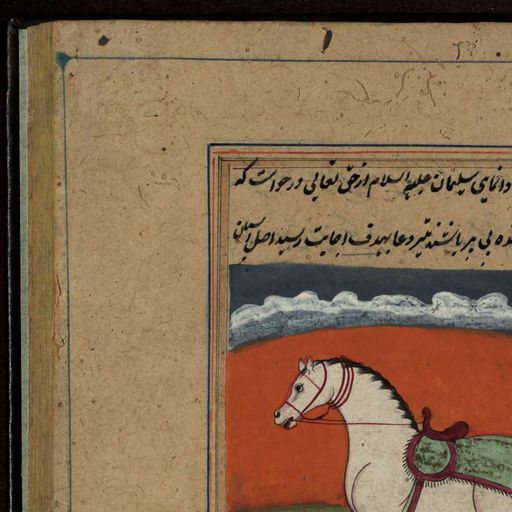 دانای سلیمان علیه السلام از حق تعالی درخواست که
ده بی پر باشند تیر دعا بهدف اجابت رسید اصل اسپان